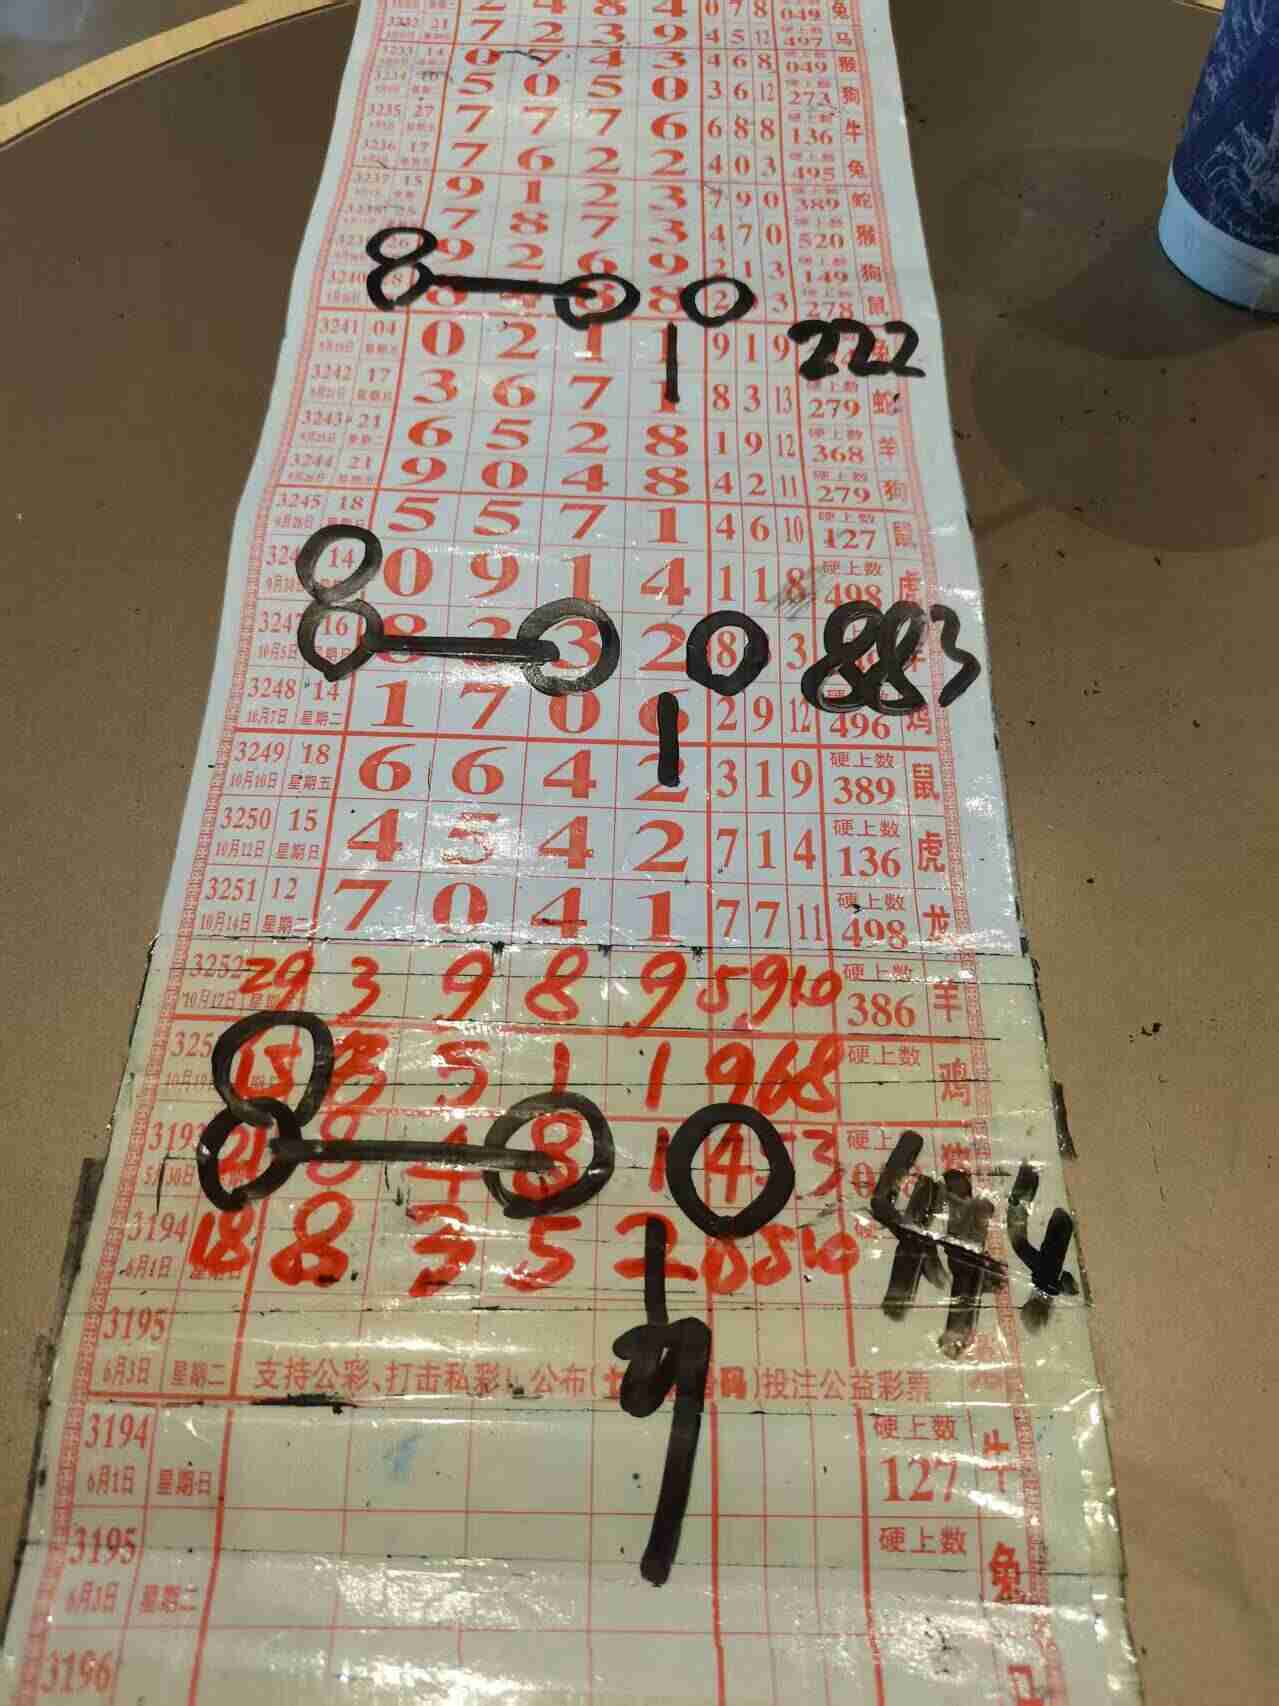 2 4 8 4 0 7 8 049 兔
3232 21 7 2 3 9 4 5 12 497 马
3233 14 0 7 4 3 4 6 8 049 猴
3234 5 0 5 0 3 6 12 273 狗
3235 27 7 7 7 6 6 8 8 136 牛
3236 17 7 6 2 2 4 0 3 495 兔
3237 15 9 1 2 3 7 9 0 389 蛇
7 8 7 3 4 7 0 520 猴
26 9 2 6 9 2 1 3 149 狗
3240 8 8 2 3 278 鼠
3241 04 0 2 1 1 9 1 9 222 兔
3242 17 3 6 7 1 8 3 13 硬上数 279 蛇
3243 21 6 5 2 8 1 9 12 硬上数 368 羊
3244 21 9 0 4 8 4 2 11 硬上数 279 狗
3245 18 9月28日 5 5 7 1 4 6 10 硬上数 127 鼠
14 0 9 1 4 1 1 8 硬上数 498 虎
3247 16 10月5日 星期日 8 3 2 8 3 883
3248 14 10月7日 星期二 1 7 0 6 2 9 12 496 鸡
3249 18 10月10日 星期五 6 6 4 2 3 1 9 硬上数 389 鼠
3250 15 10月12日 星期日 4 5 4 2 7 1 4 硬上数 136 虎
3251 12 10月14日 星期二 7 0 4 1 7 7 11 硬上数 498 龙
3252 29 10月17日 3 9 8 9 5 9 10 硬上数 386 羊
15 3 5 1 1 9 6 8 硬上数 鸡
3193 21 5月30日 8 4 8 1 4 5 3 444
3194 18 6月1日 8 3 5 2 8 5 10
3195
6月3日 星期二 支持公彩、打击私彩！公布( 码)投注公益彩票
3194 6月1日 星期日 硬上数 127 牛
3195 6月3日 星期二 硬上数 兔
3196